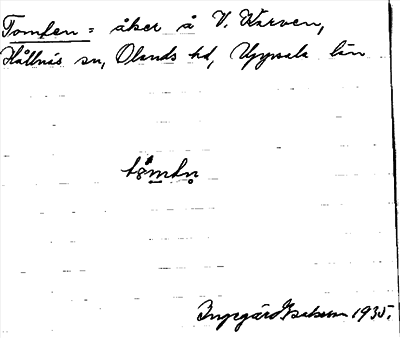 Tomten = åker å V. Karven,
Hållnäs sn, Olands hd, Uppsala län
Ingegärd Isakson 1935.